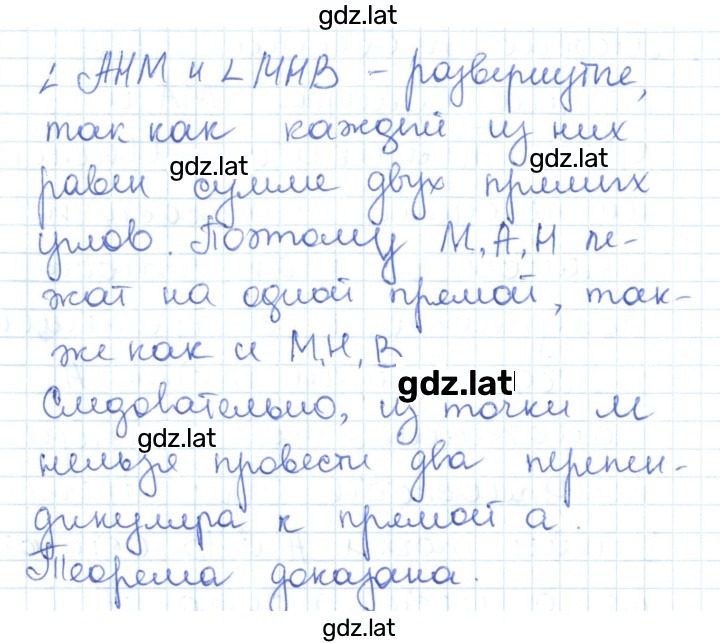 gdz.lat
∠ АНМ и ∠ МНВ – развернутые,
так как каждый из них
gdz.lat
gdz.lat
равен сумме двух прямых
углов. Поэтому М, А, Н ле-
жат на одной прямой, так-
же как и М, Н, В
gdz.lat
Следовательно, из точки М
gdz.lat
нельзя провести два перпен-
дикуляра к прямой а.
Теорема доказана.
gdz.lat